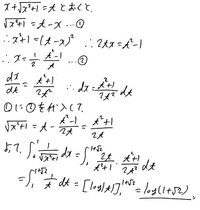 x+√x²+1 = t とおくと、
√x²+1 = t - x …①
∴x²+1 = (t-x)² ∴2tx = t²-1
∴x = 1/2 · (t²-1)/t …②
dx/dt = (t²+1)/2t² ∴dx = (t²+1)/2t² dt
①に②を代入して、
√x²+1 = t - (t²-1)/2t = (t²+1)/2t
よって、∫₀¹ 1/√x²+1 dx = ∫₁^{1+√2} 2t/(t²+1) · (t²+1)/2t² dt
= ∫₁^{1+√2} 1/t dt = [log|t|]₁^{1+√2} = log(1+√2)